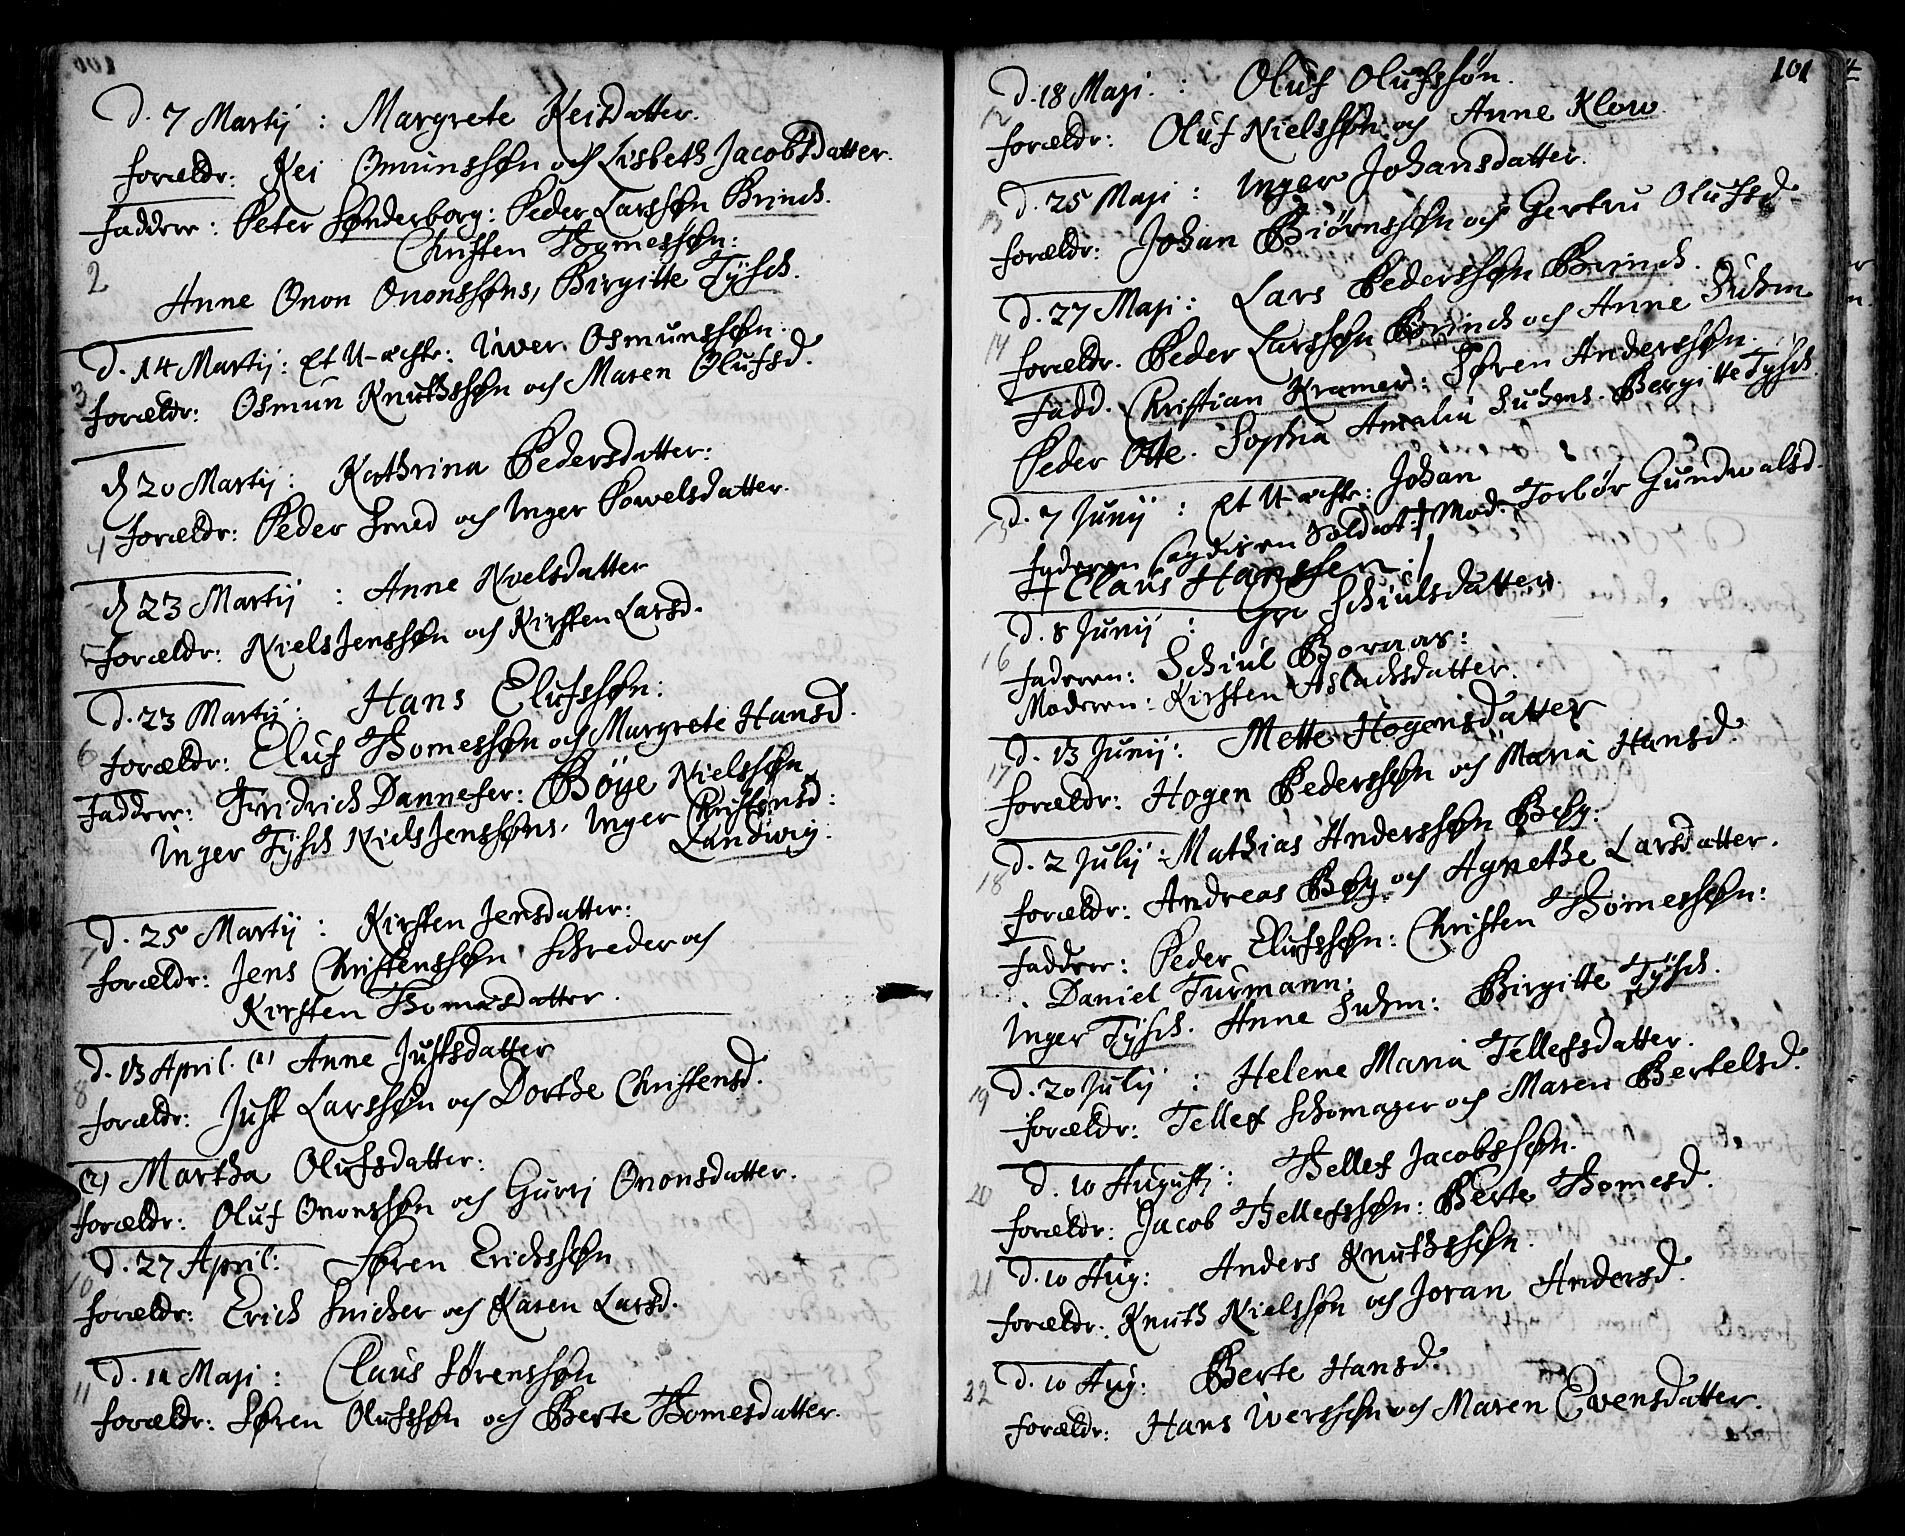 100
D. 7 Martij : Margrete Keisdatter.
forældr: Kei Onunssøn och Lisbeth Jacobsdatter.
faddrer: Peter Sønderborg: Peder Larssøn Brinch.
Christen Thomessøn:
2
Anne Onon Ononssøns, Birgitte Tysch.
D. 14 Martij: Et U-æcht: Iwer Osmunssøn:
3
forældr: Osmun Knuthssøn och Maren Olufsd.
d 20 Martij: Kathrina Pedersdatter:
4 forældr: Peder Smed och Inger Powelsdatter.
d 23 Martij : Anne Nielsdatter
5 forældr: Niels Jenssøn och Kirsten Larsd.
D. 23 Martij: Hans Elufssøn:
6 forældr: Eluf Thomessøn och Margrete Hansd.
faddrer: Fridrich Dannefer: Böye Nielssøn
Inger Tysch Niels Jenssøns, Inger Christensd:
Landwig.
D. 25 Martij : Kirsten Jensdatter:
7
forældr: Jens Christenssøn Schreder och
Kirsten Thomasdatter.
D. 13 April. (1) Anne Justsdatter
8
forældr: Just Larssøn och Dorthe Christensd.
(2) Martha Olufsdatter:
forældr: Oluf Ononssøn och Gurrj Ononsdatter.
D. 27 April: Søren Erichssøn
10
forældr: Erich Snicher och Karen Larsd.
D. 11 Maji : Claus Sørenssøn
11
forældr: Søren Olufssøn och Berte Thomesdatter.
101
D. 18 Maji. : Oluf Olufssøn.
12
forældr: Oluf Nielssøn och Anne Klow.
D. 25 Maji : Inger Johansdatter.
13
forældr: Johan Biørnssøn och Gertru Olufsd
D. 27 Maji: Lars Pederssøn Brinch.
14
forældr. Peder Larssøn Brinch och Anne Suhm
fadd. Christian Kramer: Søren Anderssøn.
Peder Otte. Sophia Amalia Suhms. Bergitte Tysch
D. 7 Junij : Et U-æcht: Johan
15
faderen sagdis en Soldat: Mod. Torbør Gundwalsd.
Claus Hanssen
D. 8 Junij : Gro Schiulsdatter
16
faderen: Schiul Boraas:
Moderen: Kirsten Aslachsdatter.
D. 13 Junij: Mette Hogensdatter
17
forældr: Hogen Pederssøn och Maria Hansd.
D. 2 Julij: Mathias Anderssøn Bøÿ:
18
forældr: Andreas Bøÿ och Agnethe Larsdatter.
faddrer: Peder Elufssøn: Christen Thomessøn:
Daniel Turmann:
Inger Tysch. Anne Suhm: Birgitte Tysch.
D. 20 Julij : Helene Maria Tellefsdatter.
19
forældr: Tellef Schomager och Maren Bertelsd.
D. 10 Augustj: Thellef Jacobssøn.
20
forældr: Jacob Thellefssøn: Berte Thomesd.
D. 10 Aug: Anders Knuthssøn.
21
forældr: Knuth Nielssøn och Joran Andersd.
D. 10 Aug: Berte Hansd.
22
forældr: Hans Iwerssøn och Maren Evensdatter.